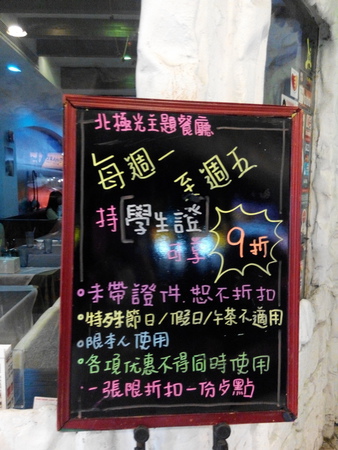 北極光主題餐廳
每週一
至週五
持[學生證]
可享 9折
•未帶證件.恕不折扣
•特殊節日/假日/午茶不適用
•限本人使用
•各項优惠不得同時使用
•一張限折扣一份歺點